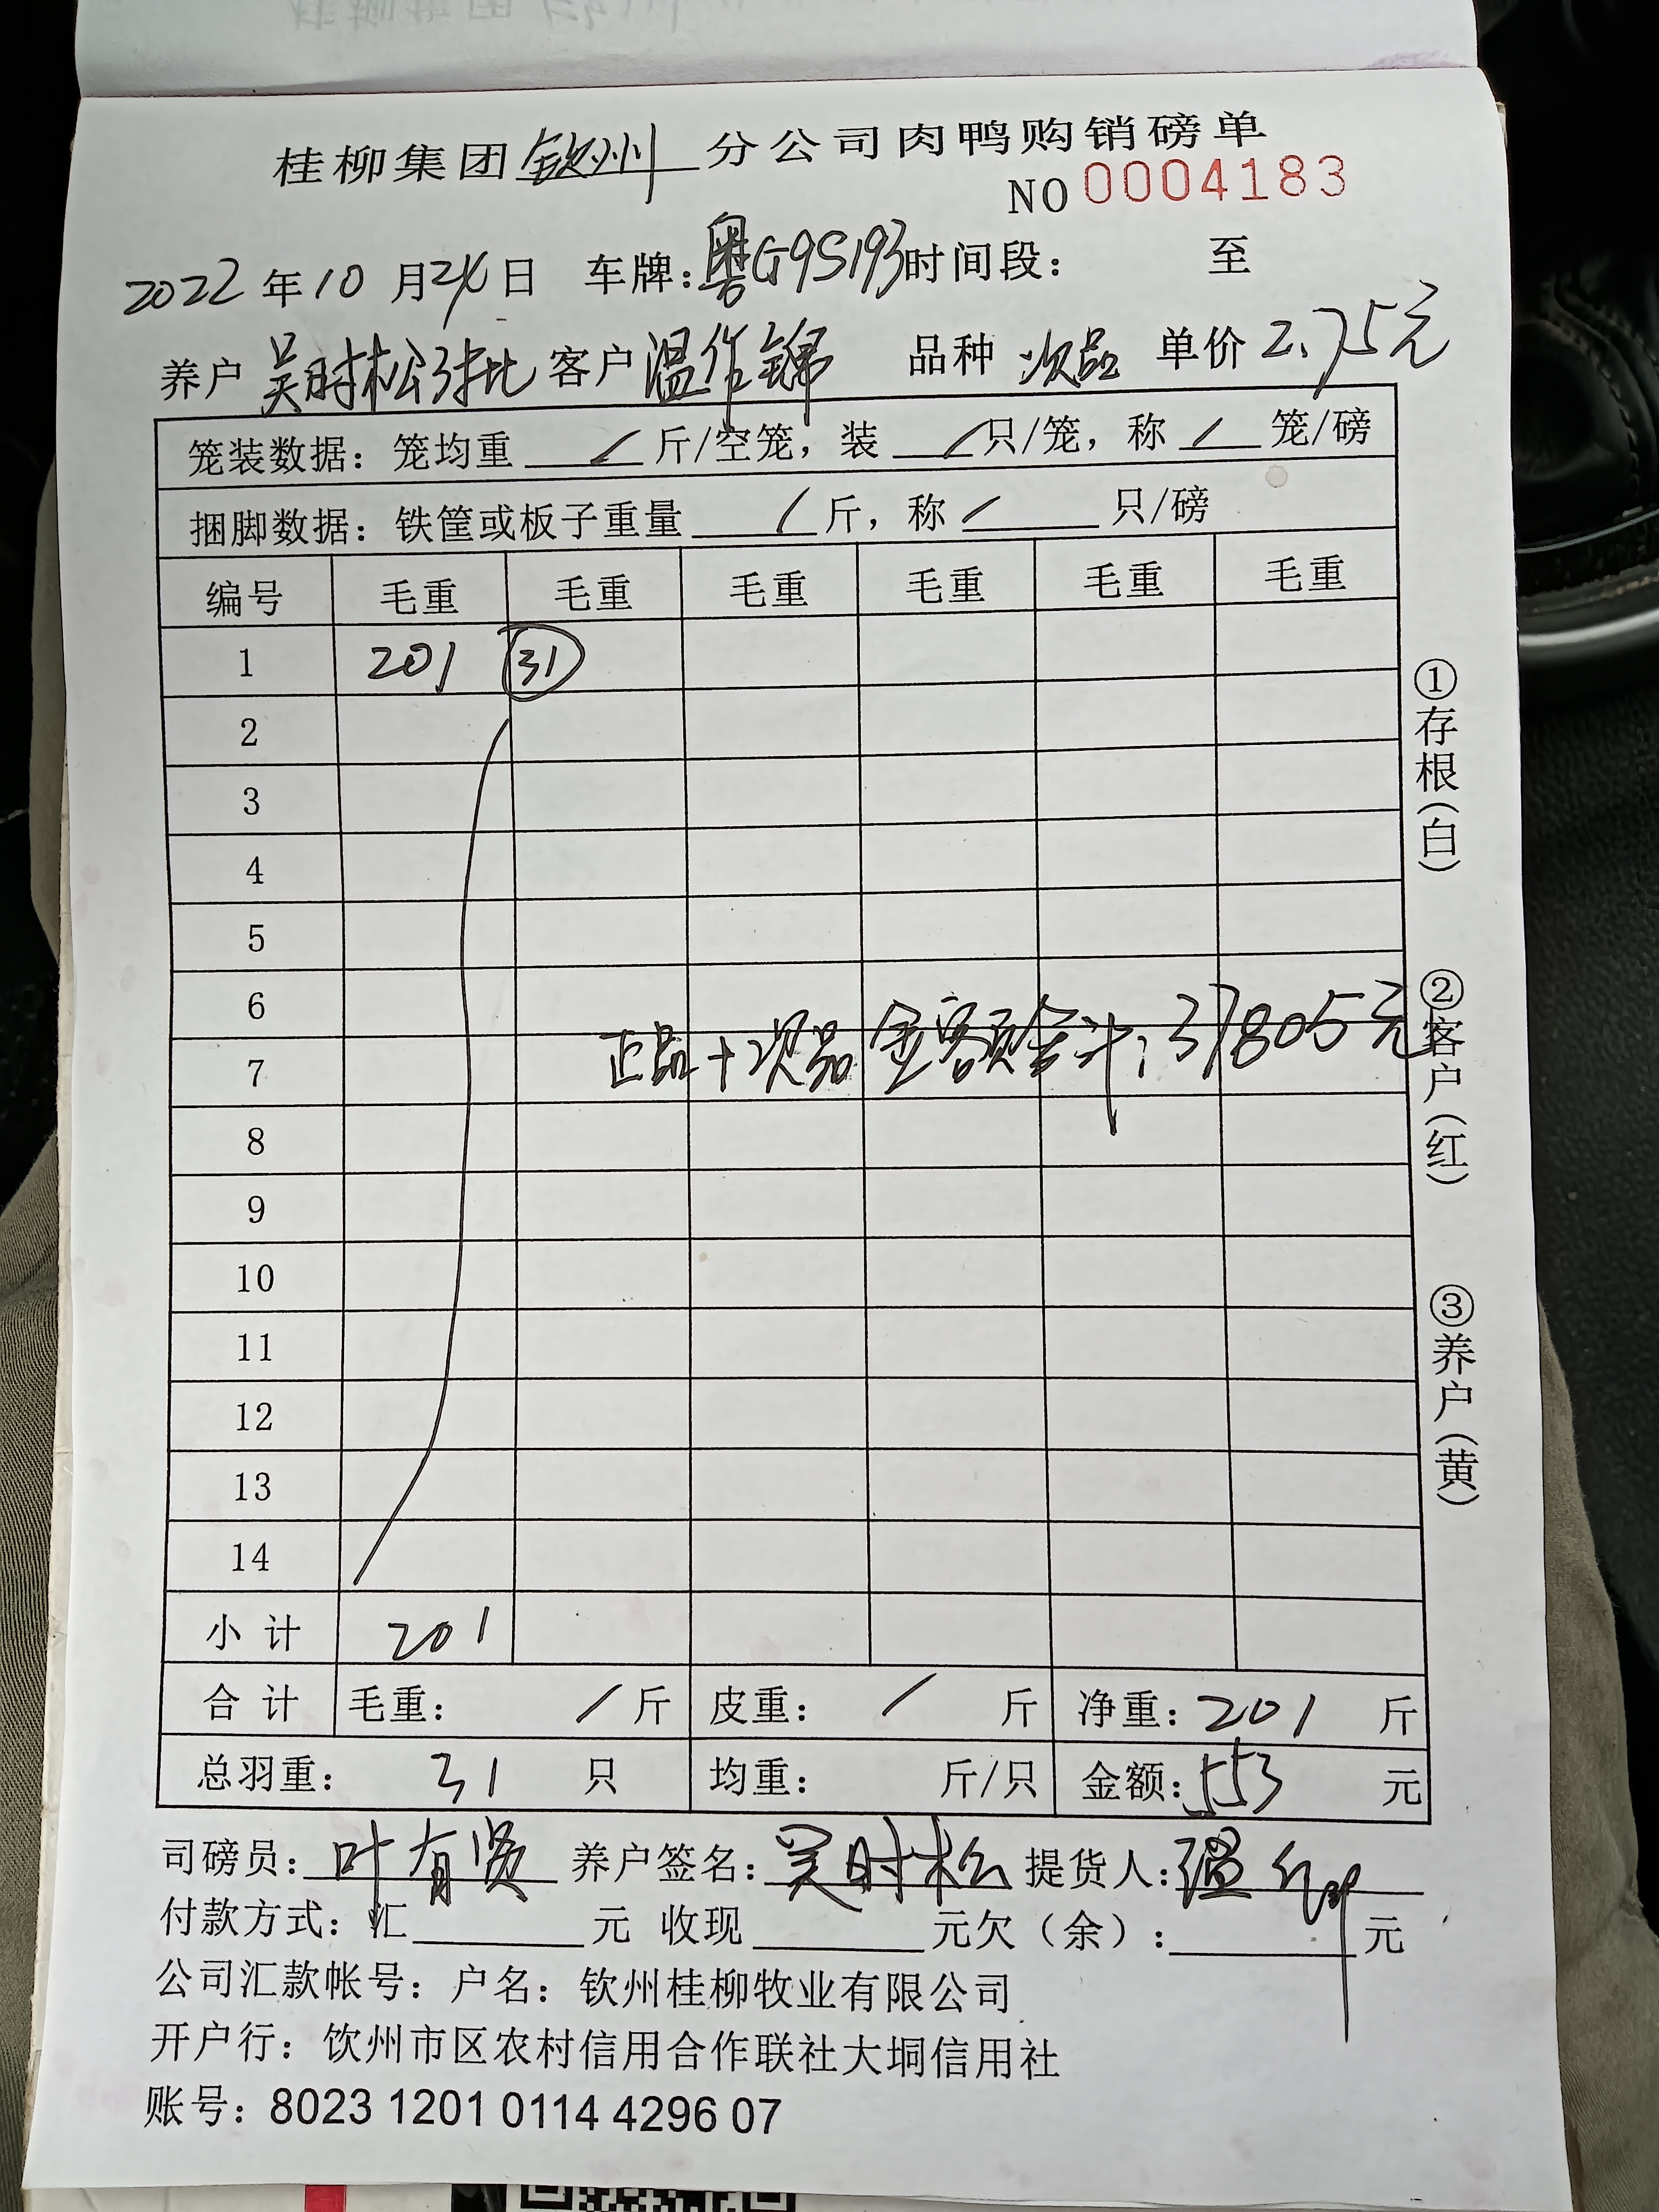 桂柳集团钦州分公司肉鸭购销磅单
NO 0004183
2022年10月24日 车牌:粤G9S193时间段: 至
养户 吴时松3批 客户 温作锦 品种 次品 单价2.75元
笼装数据: 笼均重 / 斤/空笼, 装 / 只/笼, 称 / 笼/磅
捆脚数据: 铁筐或板子重量 / 斤, 称 / 只/磅
编号 毛重 毛重 毛重 毛重 毛重 毛重
1 201 31
2
3
4
5
6
7
正品+次品 金额合计:37805元
8
9
10
11
12
13
14
小计 201
合计 毛重: / 斤 皮重: / 斤 净重: 201 斤
总羽重: 31 只 均重: 斤/只 金额:553 元
司磅员: 叶有贤 养户签名: 吴时松 提货人:温
付款方式: 汇 元 收现 元欠(余): 元
公司汇款帐号: 户名: 钦州桂柳牧业有限公司
开户行: 饮州市区农村信用合作联社大垌信用社
账号: 8023 1201 0114 4296 07
①存根(白)
②客户(红)
③养户(黄)